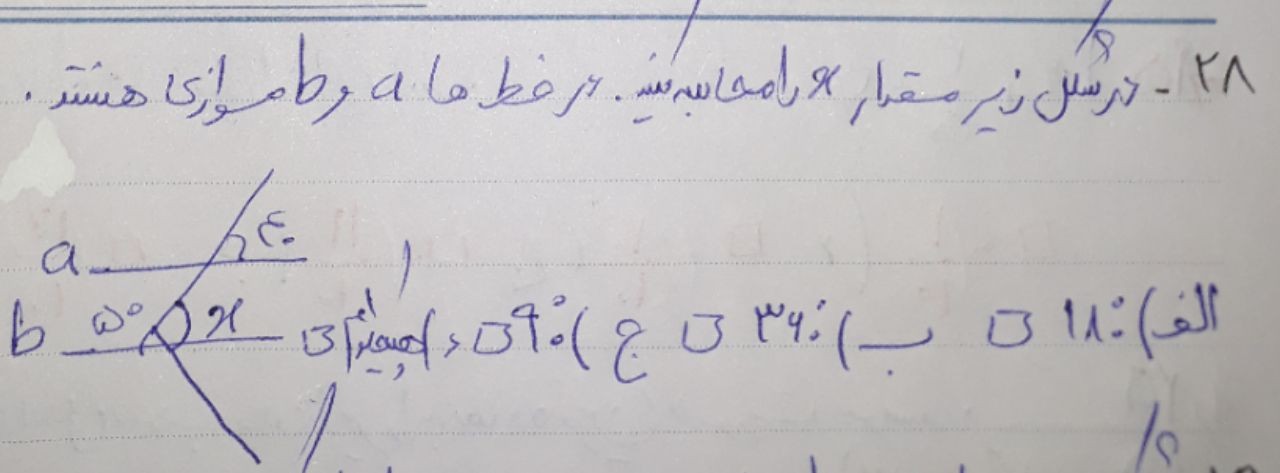 ۲۸ - در شکل زیر مقدار x را محاسبه کنید. در خط ها a و b موازی هستند.
a ۴۰
b ۵۰ x
الف) ۱۸۰ ب) ۳۶۰ ج) ۹۰ د)